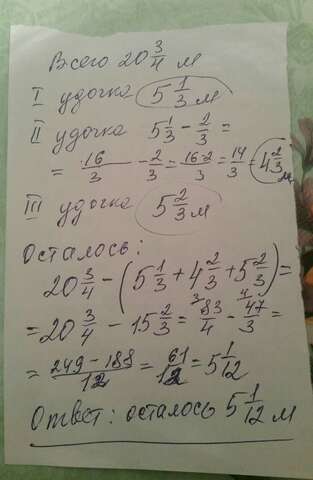 Всего 20 3/4 м
I удочка 5 1/3 м
II удочка 5 1/3 - 2/3 =
= 16/3 - 2/3 = 16-2/3 = 14/3 = 4 2/3 м
III удочка 5 2/3 м
Осталось:
20 3/4 - (5 1/3 + 4 2/3 + 5 2/3) =
= 20 3/4 - 15 2/3 = 3 83/4 - 4 47/3 =
= 249-188/12 = 61/12 = 5 1/12
Ответ: осталось 5 1/12 м